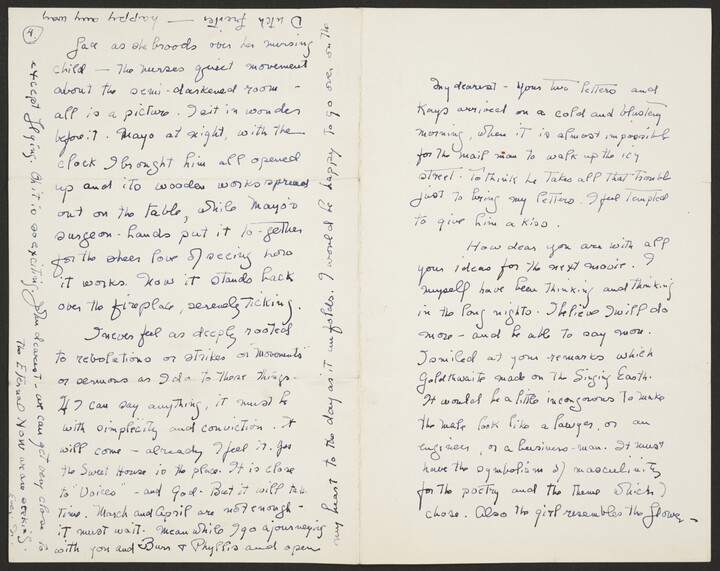 My dearest - Your two letters and
Kays arrived on a cold and blustery
morning, when it is almost impossible
for the mail man to walk up the icy
street. To think he takes all that trouble
just to bring my letters. I feel tempted
to give him a kiss.
How dear you are with all
your ideas for the next movie. I
myself have been thinking and thinking
in the long nights. I believe I will do
more - and be able to say more.
I smiled at your remarks which
Goldthwaite made on the Singing Earth.
It would be a little incongruous to make
the male look like a lawyer, or an
engineer, or a business-man. It must
have the symbolism of masculinity
for the poetry and the theme which I
chose. Also the girl resembles the flower -
4.
face as she broods over her nursing
child - the nurses quiet movement
about the semi-darkened room -
all is a picture. I sit in wonder
before it. Mayo at night, with the
clock I brought him all opened
up and its wooden works spread
out on the table, while Mayo's
surgeon-hands put it to-gether
for the sheer love of seeing how
it works. Now it stands back
over the fireplace, serenely ticking.
I never feel as deeply rooted
to revolutions or strikes or "movements"
or sermons as I do to these things.
If I can say anything, it must be
with simplicity and conviction. It
will come - already I feel it. For
the Sweet House is the place. It is close
to "Voices" - and God. But it will take
time. March and April are not enough -
it must wait. Meanwhile I go a journeying
with you and Burr & Phyllis and open
my heart to the day as it unfolds. I would be happy to go over on the
Dutch freighter - happy any way
except flying. Oh it is so exciting. John dearest - we can get very close to
The Eternal Now we are seeking.